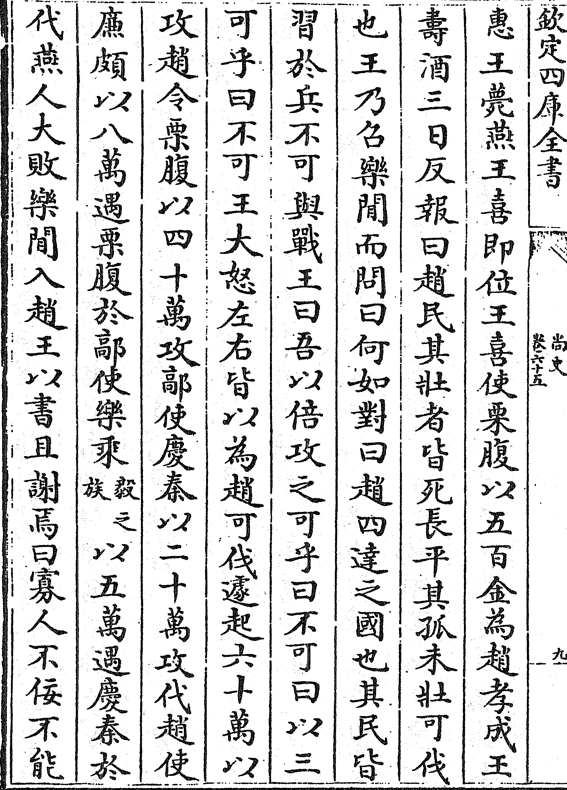 欽定四庫全書
尚史
卷六十五
九
惠王薨燕王喜即位王喜使栗腹以五百金為趙孝成王
壽酒三日反報曰趙民其壯者皆死長平其孤未壯可伐
也王乃召樂閒而問曰何如對曰趙四達之國也其民皆
習於兵不可與戰王曰吾以倍攻之可乎曰不可曰以三
可乎曰不可王大怒左右皆以為趙可伐遽起六十萬以
攻趙令栗腹以四十萬攻鄗使慶秦以二十萬攻代趙使
廉頗以八萬遇栗腹於鄗使樂乘毅之族以五萬遇慶秦於
代燕人大敗樂閒入趙王以書且謝焉曰寡人不佞不能